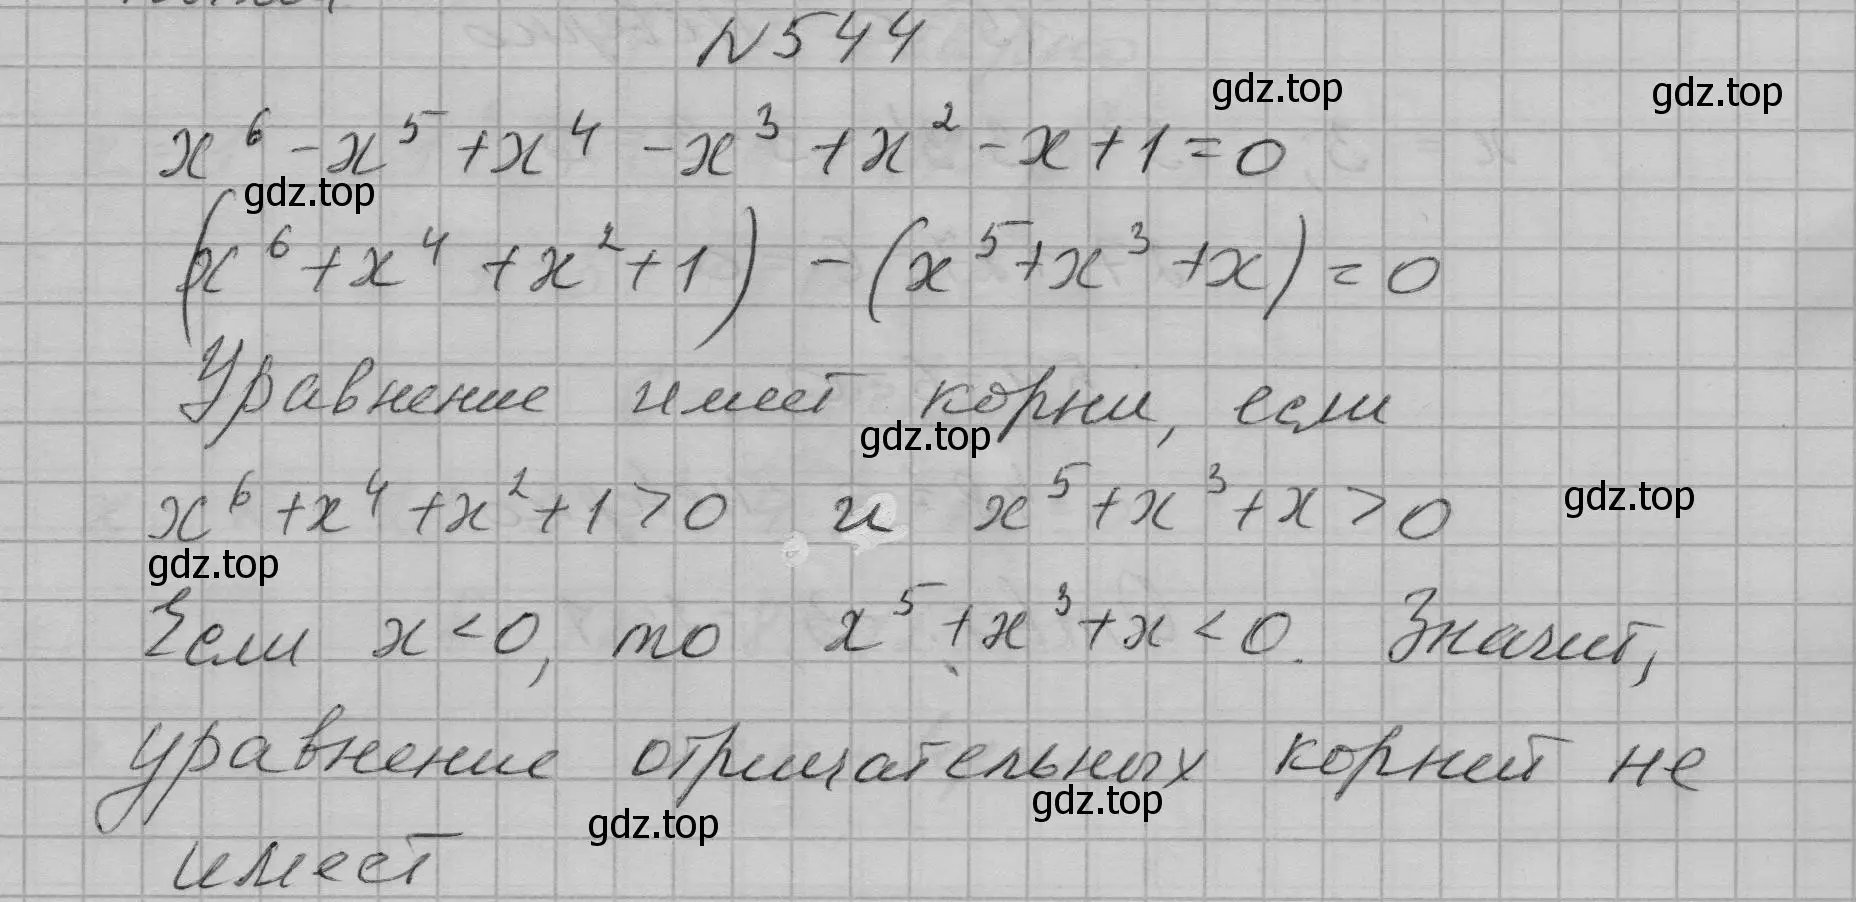 N544
gdz.top gdz.top
x⁶ - x⁵ + x⁴ - x³ + x² - x + 1 = 0
gdz.top
(x⁶ + x⁴ + x² + 1) - (x⁵ + x³ + x) = 0
Уравнение имеет корни, если
gdz.top
x⁶ + x⁴ + x² + 1 > 0 и x⁵ + x³ + x > 0
gdz.top
gdz.top
Если x < 0, то x⁵ + x³ + x < 0. Значит,
уравнение отрицательных корней не
gdz.top
gdz.top
имеет